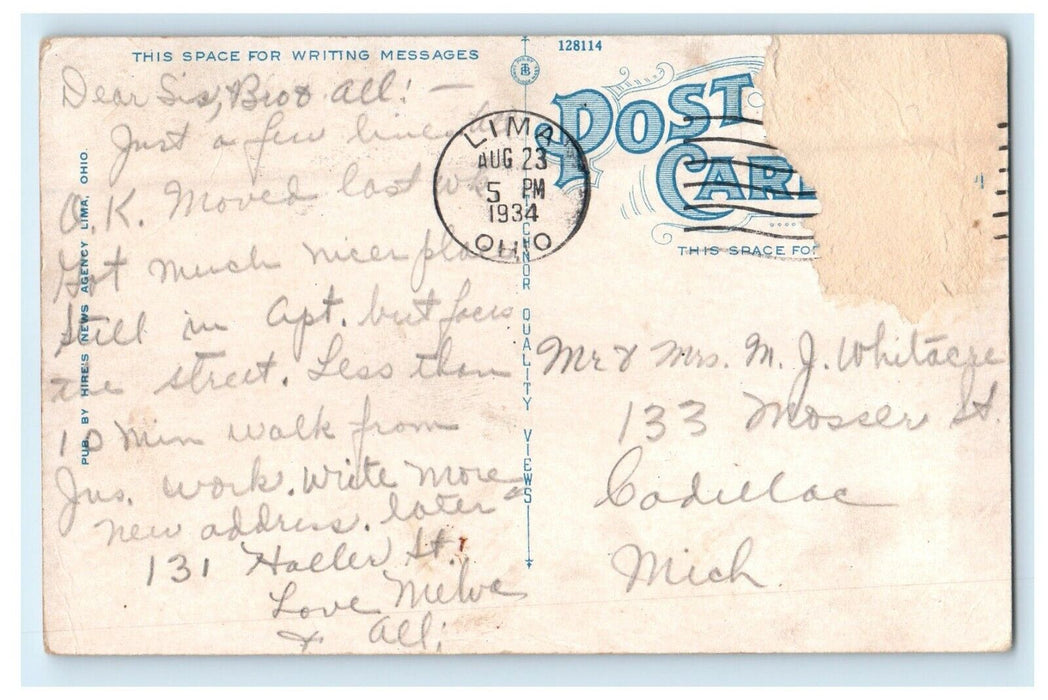 THIS SPACE FOR WRITING MESSAGES
Dear Sis, Bro & all: —
Just a few lines
O.K. Moved last wk.
Got much nicer place
still in Apt. but faces
the street. Less than
10 min walk from
Jus. work. Write more
later
new address.
131 Haller St.
Love Melva
& All.
PUB. BY HIRE'S NEWS AGENCY LIMA, OHIO.
LIMA
AUG 23
5 PM
1934
OHIO
TICHNOR QUALITY VIEWS
128114
POST
CAR
THIS SPACE FO
Mr & Mrs. M. J. Whitacre
133 Mosser St.
Cadillac
Mich.